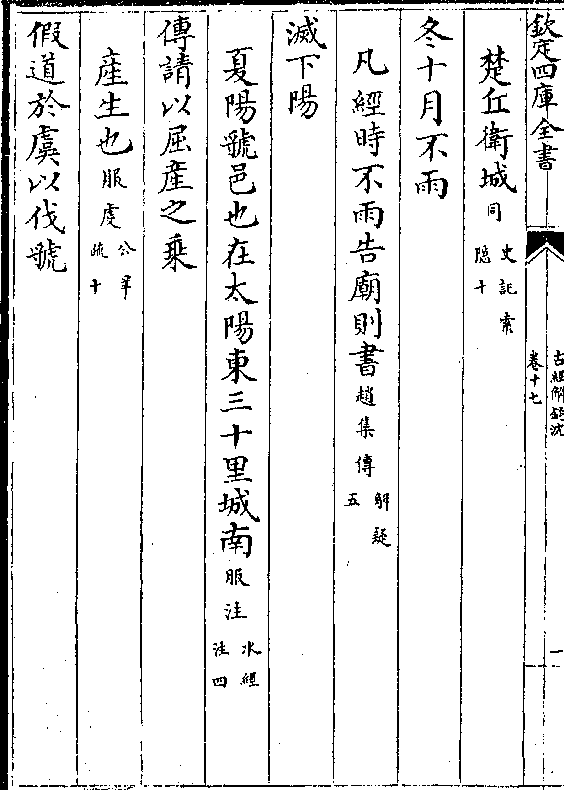 欽定四庫全書
古經解鉤沈
卷十七
一
楚丘衛城同史記索隱十
冬十月不雨
凡經時不雨告廟則書趙集傳解疑五
滅下陽
夏陽虢邑也在太陽東三十里城南服注水經注四
傳請以屈產之乘
產生也服虔公羊疏十
假道於虞以伐虢